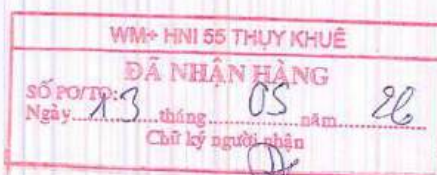 WM+ HNI 55 THỤY KHUÊ
ĐÃ NHẬN HÀNG
SỐ PO/TO:
Ngày 13 tháng 05 năm 26
Chữ ký người nhận